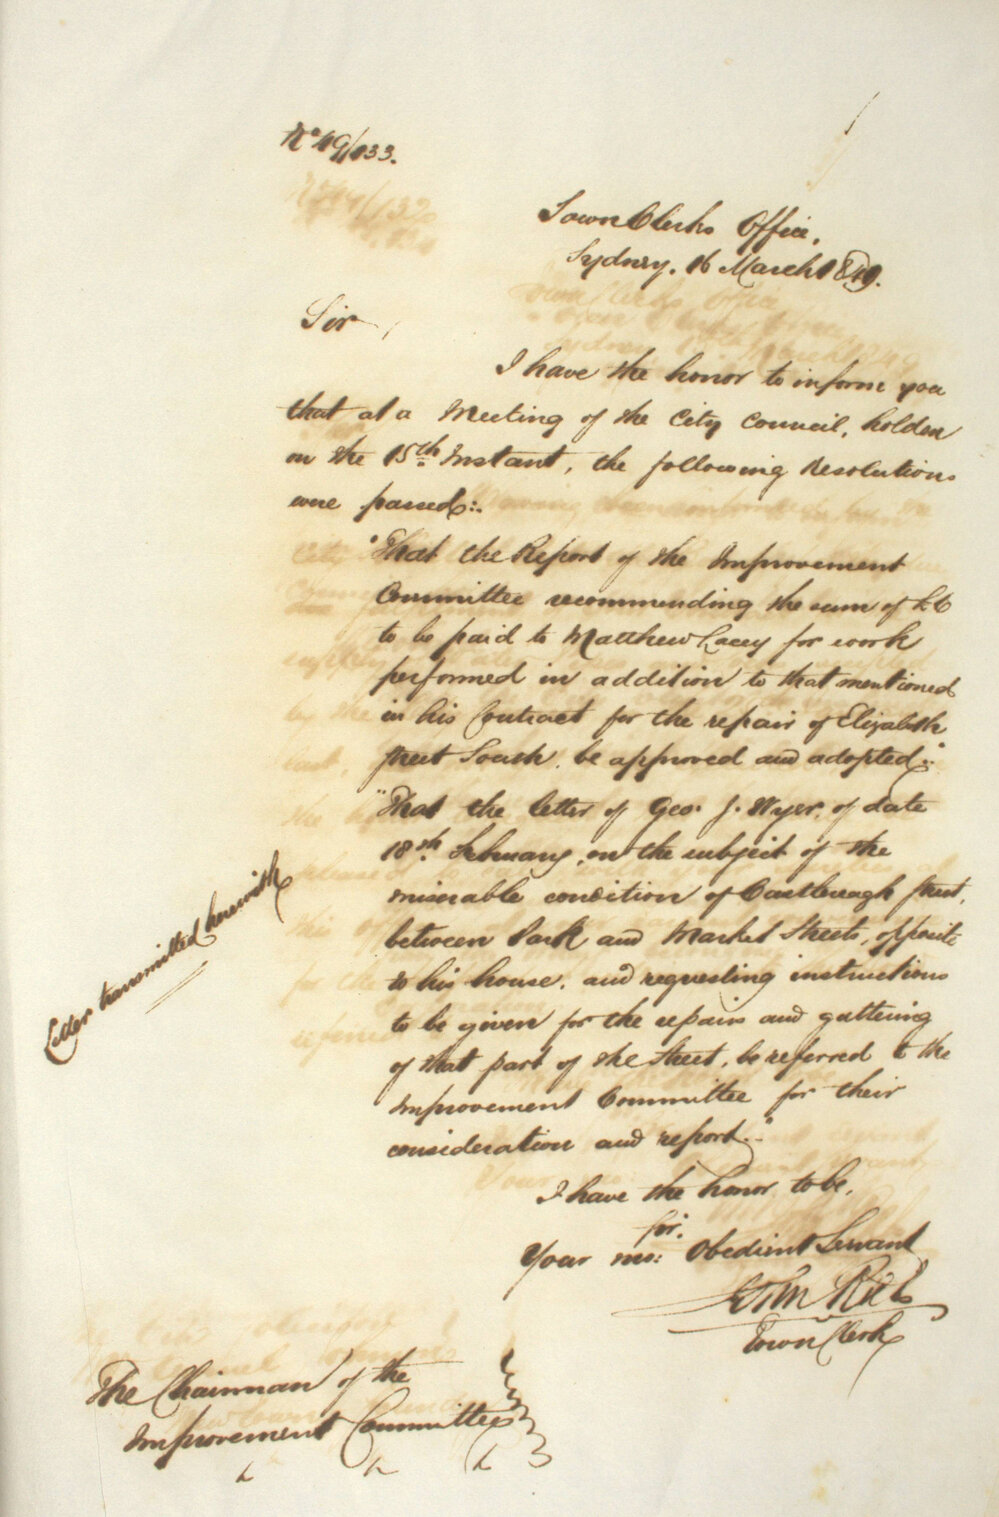 No 49/133.
Town Clerks Office,
Sydney, 16 March 1849.
Sir,
I have the honor to inform you
that at a Meeting of the City Council, holden
on the 15th Instant, the following Resolutions
were passed:.
"That the Report of the Improvement
Committee recommending the sum of £6
to be paid to Matthew Lacey for work
performed in addition to that mentioned
in his Contract for the repair of Elizabeth
Street South, be approved and adopted."
"That the letter of Geo. J. Wyer, of date
18th February, on the subject of the
miserable condition of Castlereagh Street,
between Park and Market Streets, opposite
to his house, and requesting instructions
to be given for the repairs and guttering
of that part of the Street, be referred to the
Improvement Committee for their
consideration and report."
Letter transmitted herewith
I have the honor to be,
Sir,
Your mo: Obedient Servant
John Rae
Town Clerk
The Chairman of the
Improvement Committee